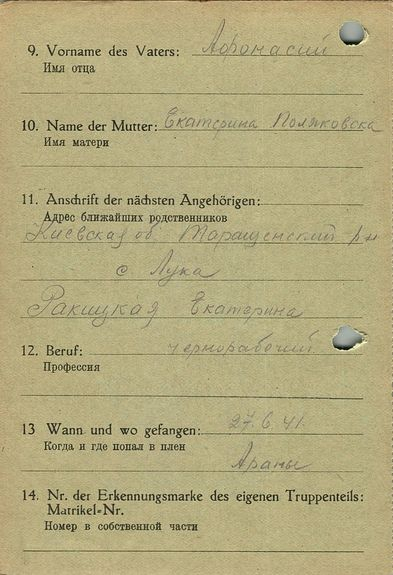 9. Vorname des Vaters: Афонасий
Имя отца
10. Name der Mutter: Екатерина Поляковска
Имя матери
11. Anschrift der nächsten Angehörigen:
Адрес ближайших родственников
Киевская об. Таращенский р-н
с Лука
Ракицкая Екатерина
12. Beruf: чернорабочий
Профессия
13 Wann und wo gefangen: 27.6.41.
Когда и где попал в плен
Араны
14. Nr. der Erkennungsmarke des eigenen Truppenteils:
Matrikel-Nr.
Номер в собственной части